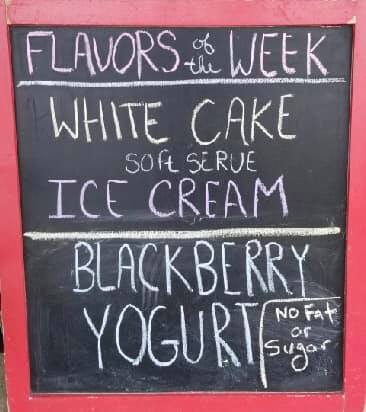 FLAVORS of the WEEK
WHITE CAKE
SOFt SERVE
ICE CREAM
BLACKBERRY
YOGURT
NO Fat
or
Sugar